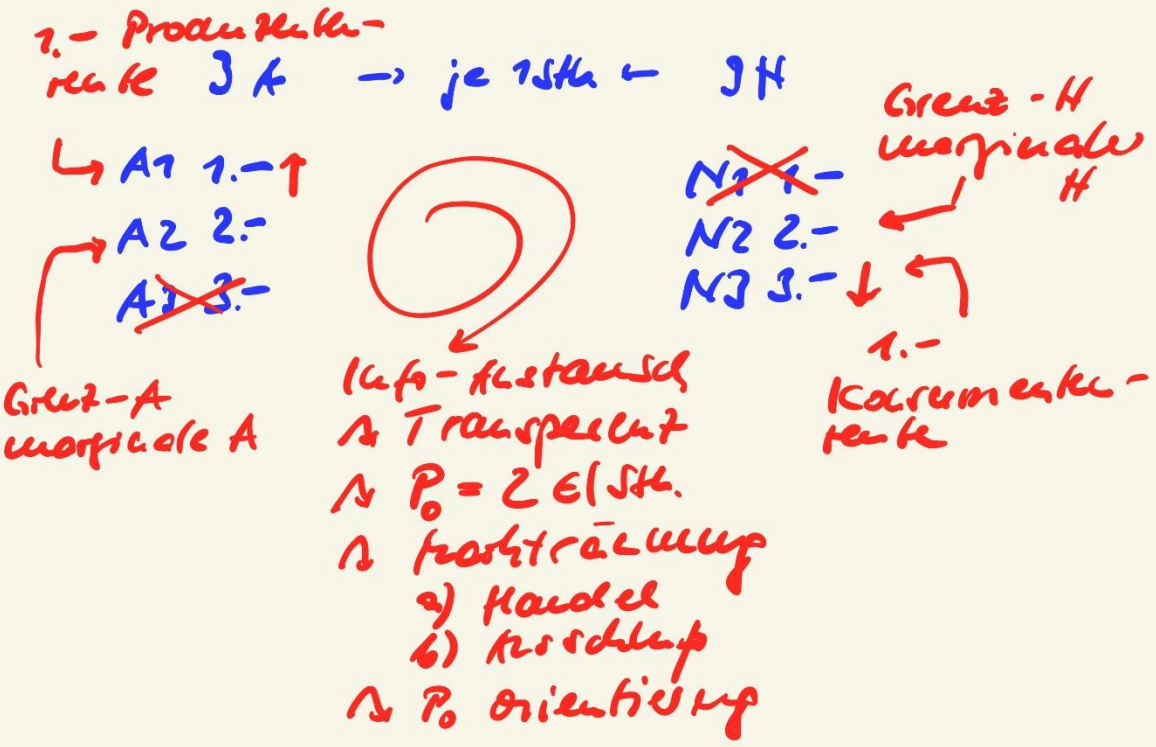 1.- Produzenten-
rente 3 A → je 1 Stk ← 3 N
Grenz-N
marginaler
N
↳ A1 1.- ↑
A2 2.-
A3 3.-
N1 1.-
N2 2.-
N3 3.- ↓
Grenz-A
marginale A
1.-
Konsumenten-
rente
Info-Austausch
Transparenz
P₀ = 2 €/Stk.
Markträumung
a) Handel
b) Ausschluß
P₀ orientierung